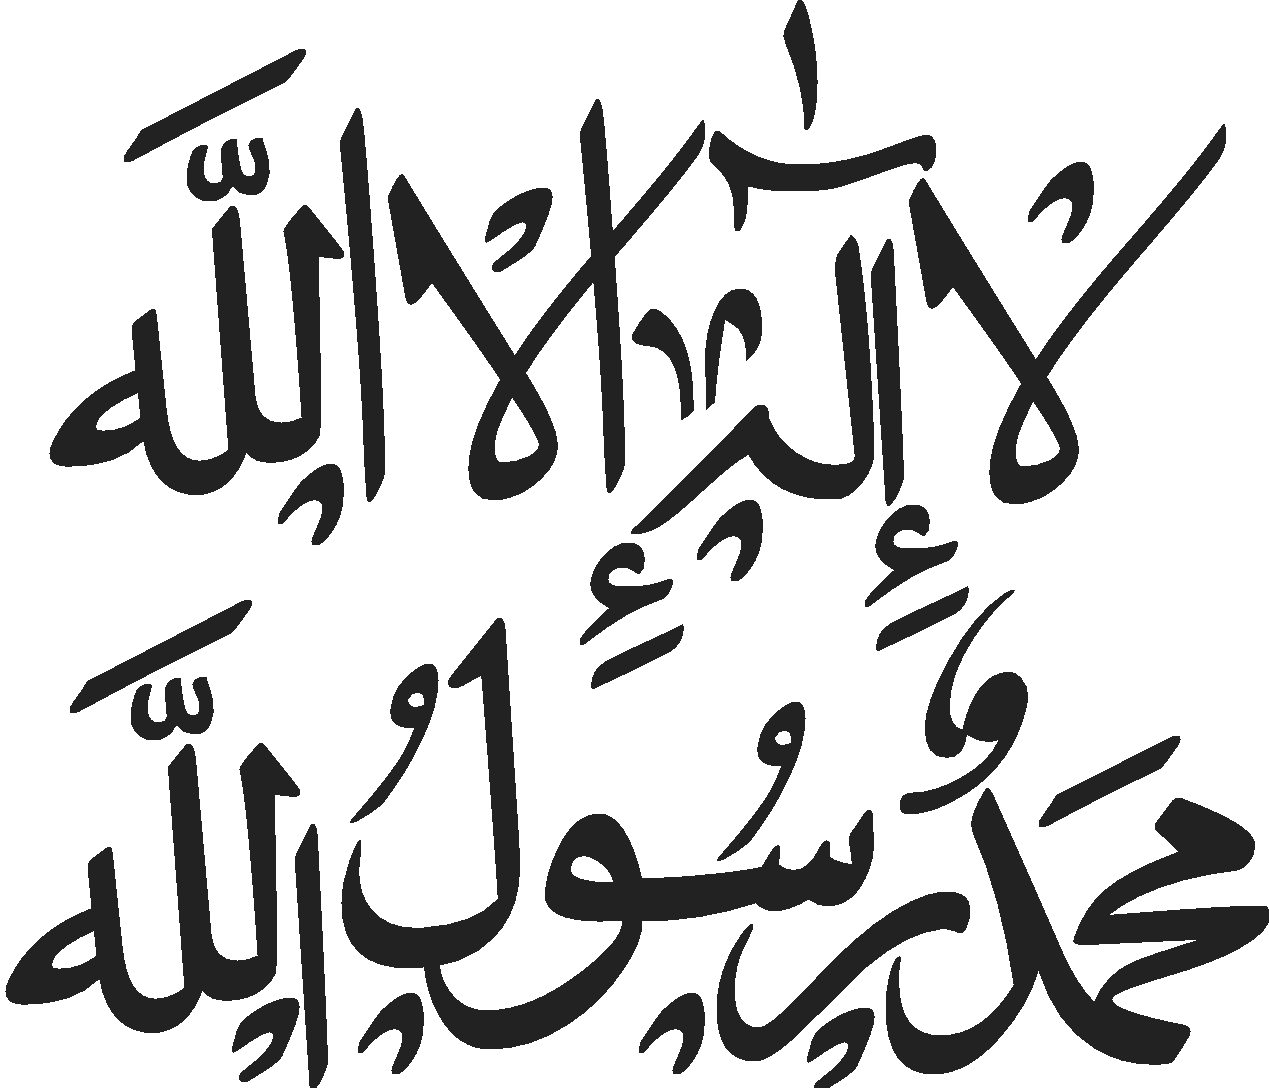 لَآ إِلٰهَ إِلَّا اللَّه
مُحَمَّدٌ رَسُولُ اللَّه